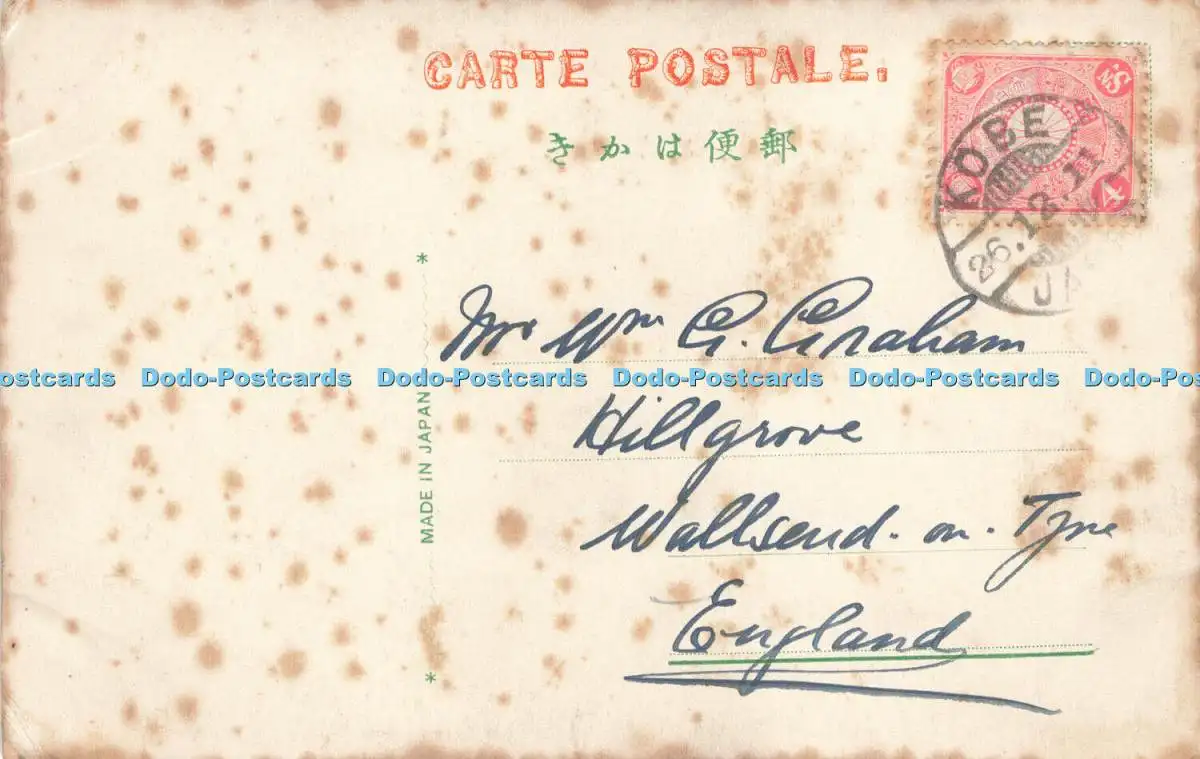 CARTE POSTALE.
きかは便郵
KOBE
26.12.11
JA
4
Sn.
Mr Wm G. Graham
Dodo-Postcards Dodo-Postcards Dodo-Postcards Dodo-Postcards Dodo-Postcards Dodo-Postcards
Hillgrove
Wallsend. on. Tyne
England
* MADE IN JAPAN *